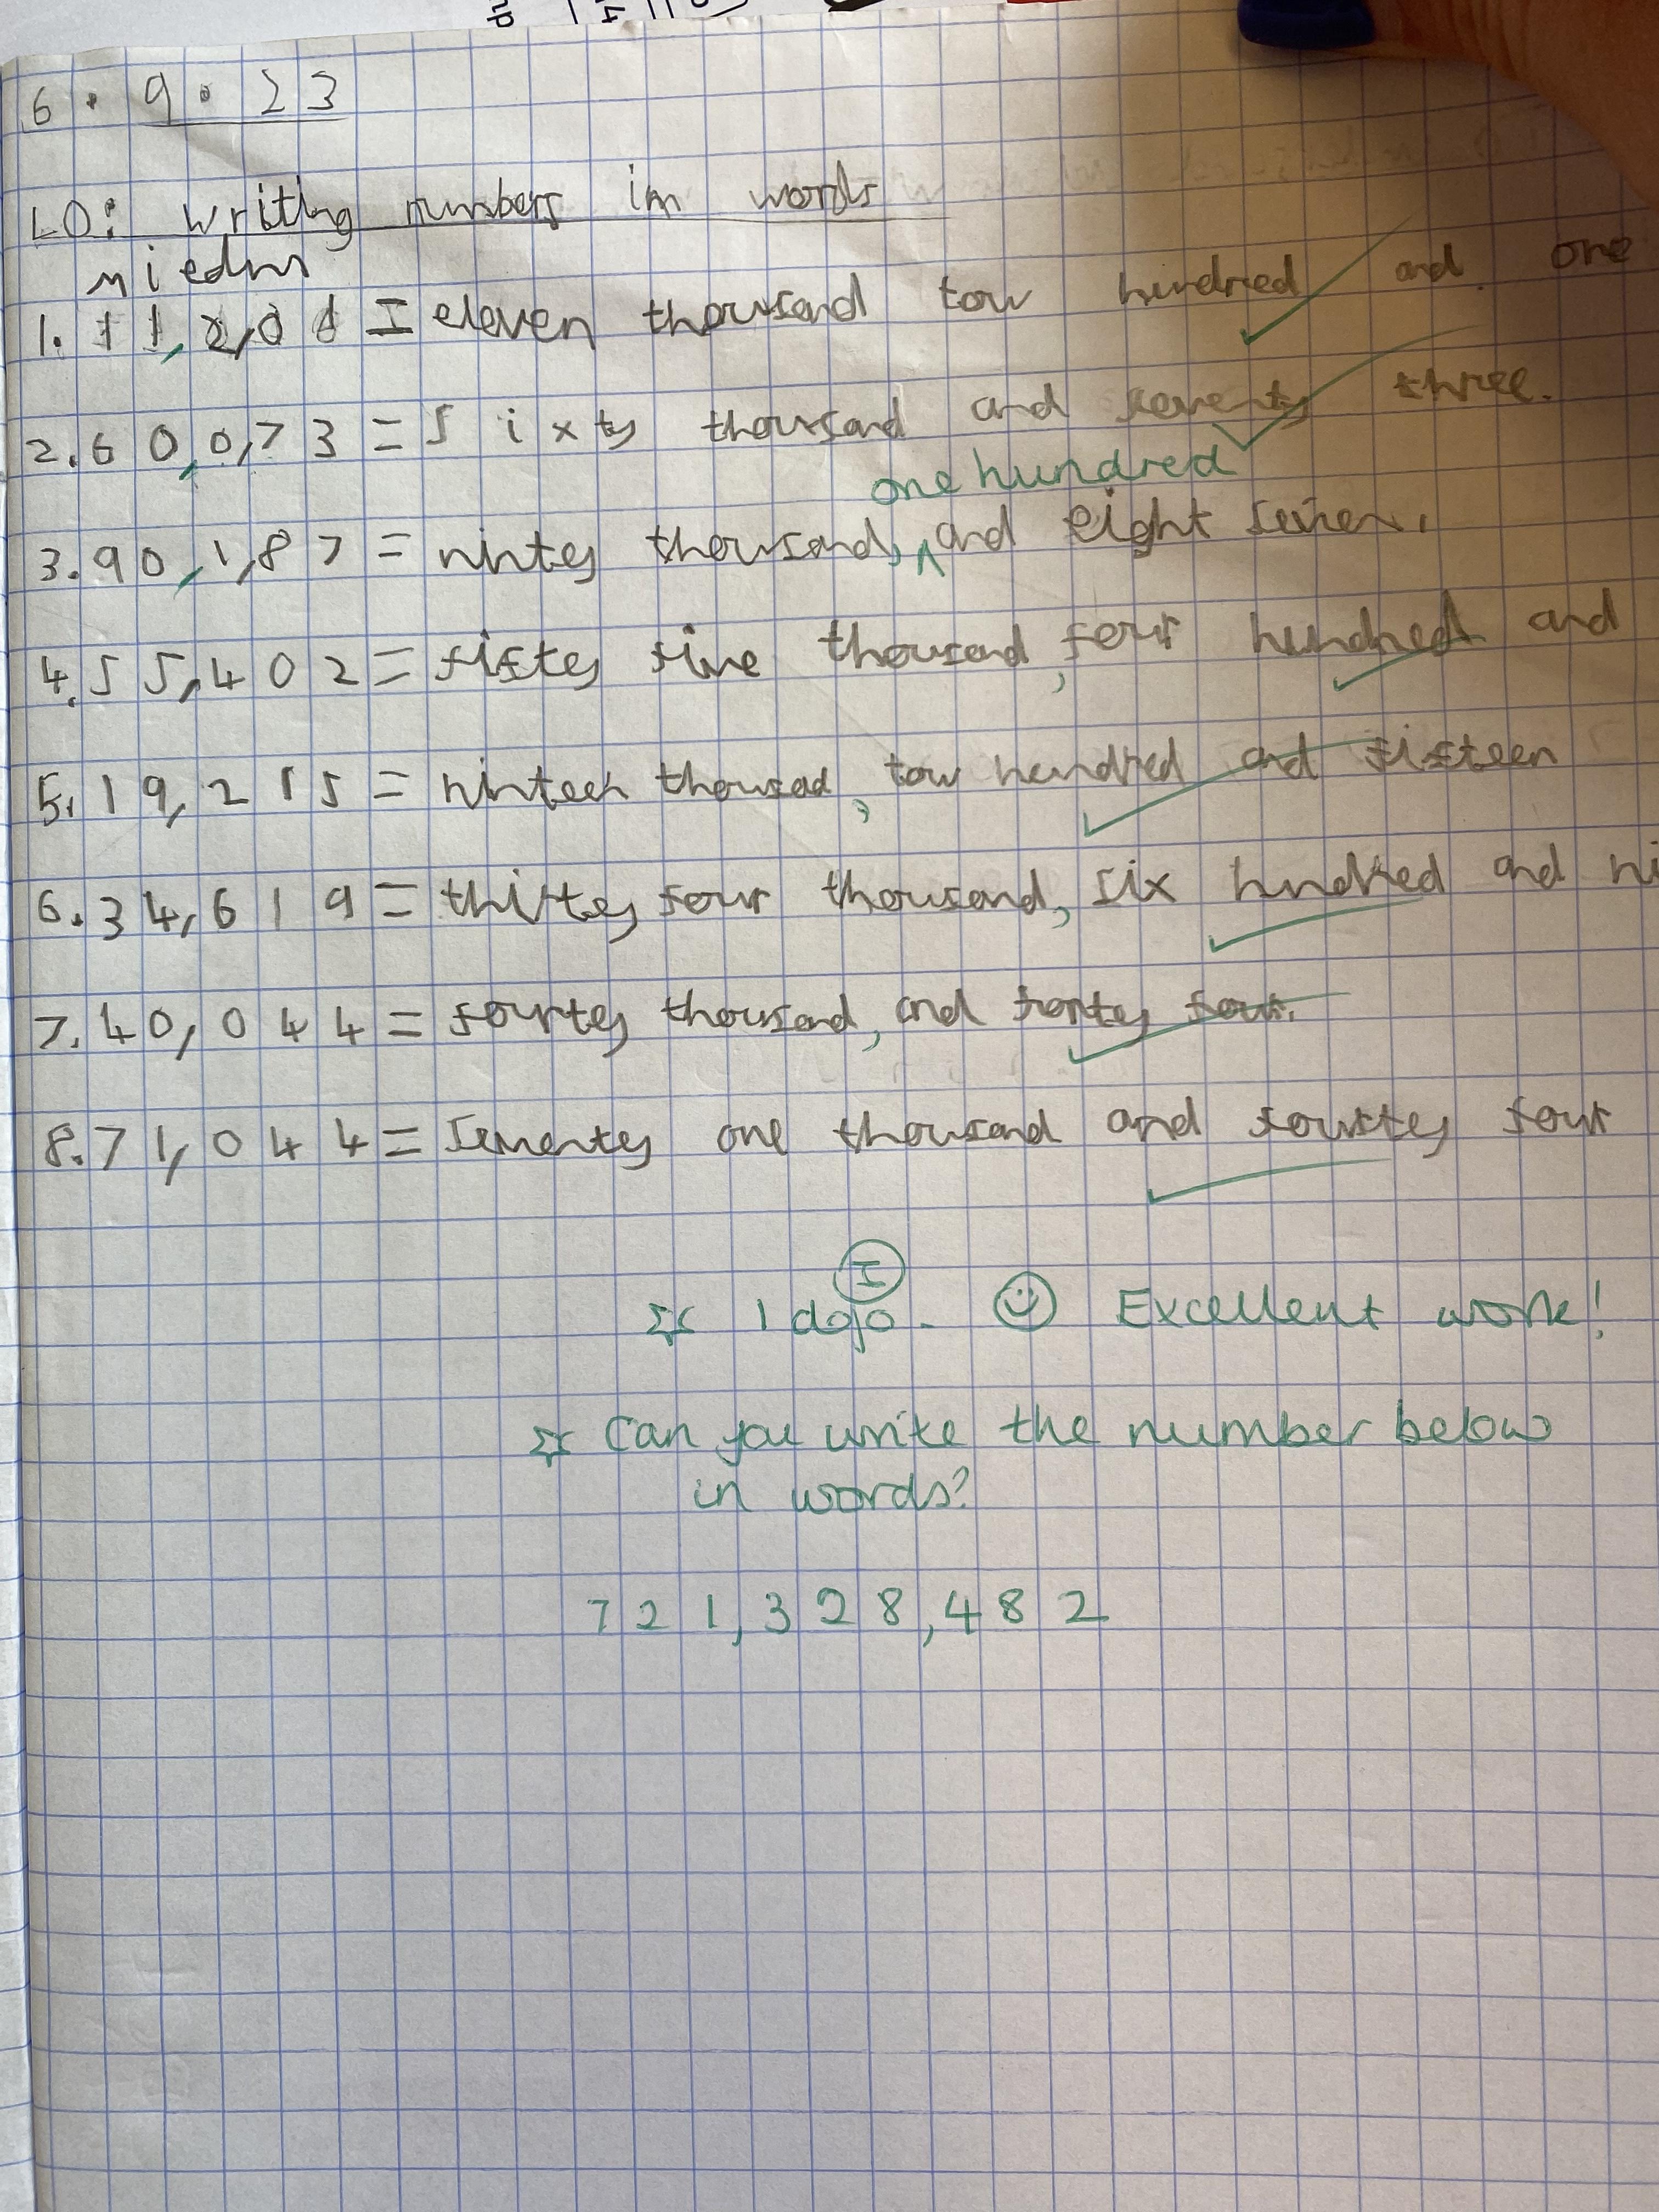 6 . 9 . 23
LO: writing numbers in words
miedm
1. 11,2,01 = eleven thousand tow hundred and one
2. 60,0,73 = sixty thousand and seventy three.
one hundred
3. 90,1,87 = ninty thousand, ^ and eight seven.
4. 55,402 = fifty five thousand, four hundred and
5. 19,215 = ninteen thousad, tow hundred and fifteen
6. 34,619 = thirty four thousand, six hundred and ni
7. 40,044 = fourty thousand, and forty four.
8. 71,044 = seventy one thousand and fourty four
I
☆ 1 dojo. ☺ Excellent work!
☆ Can you write the number below
in words?
721,328,482